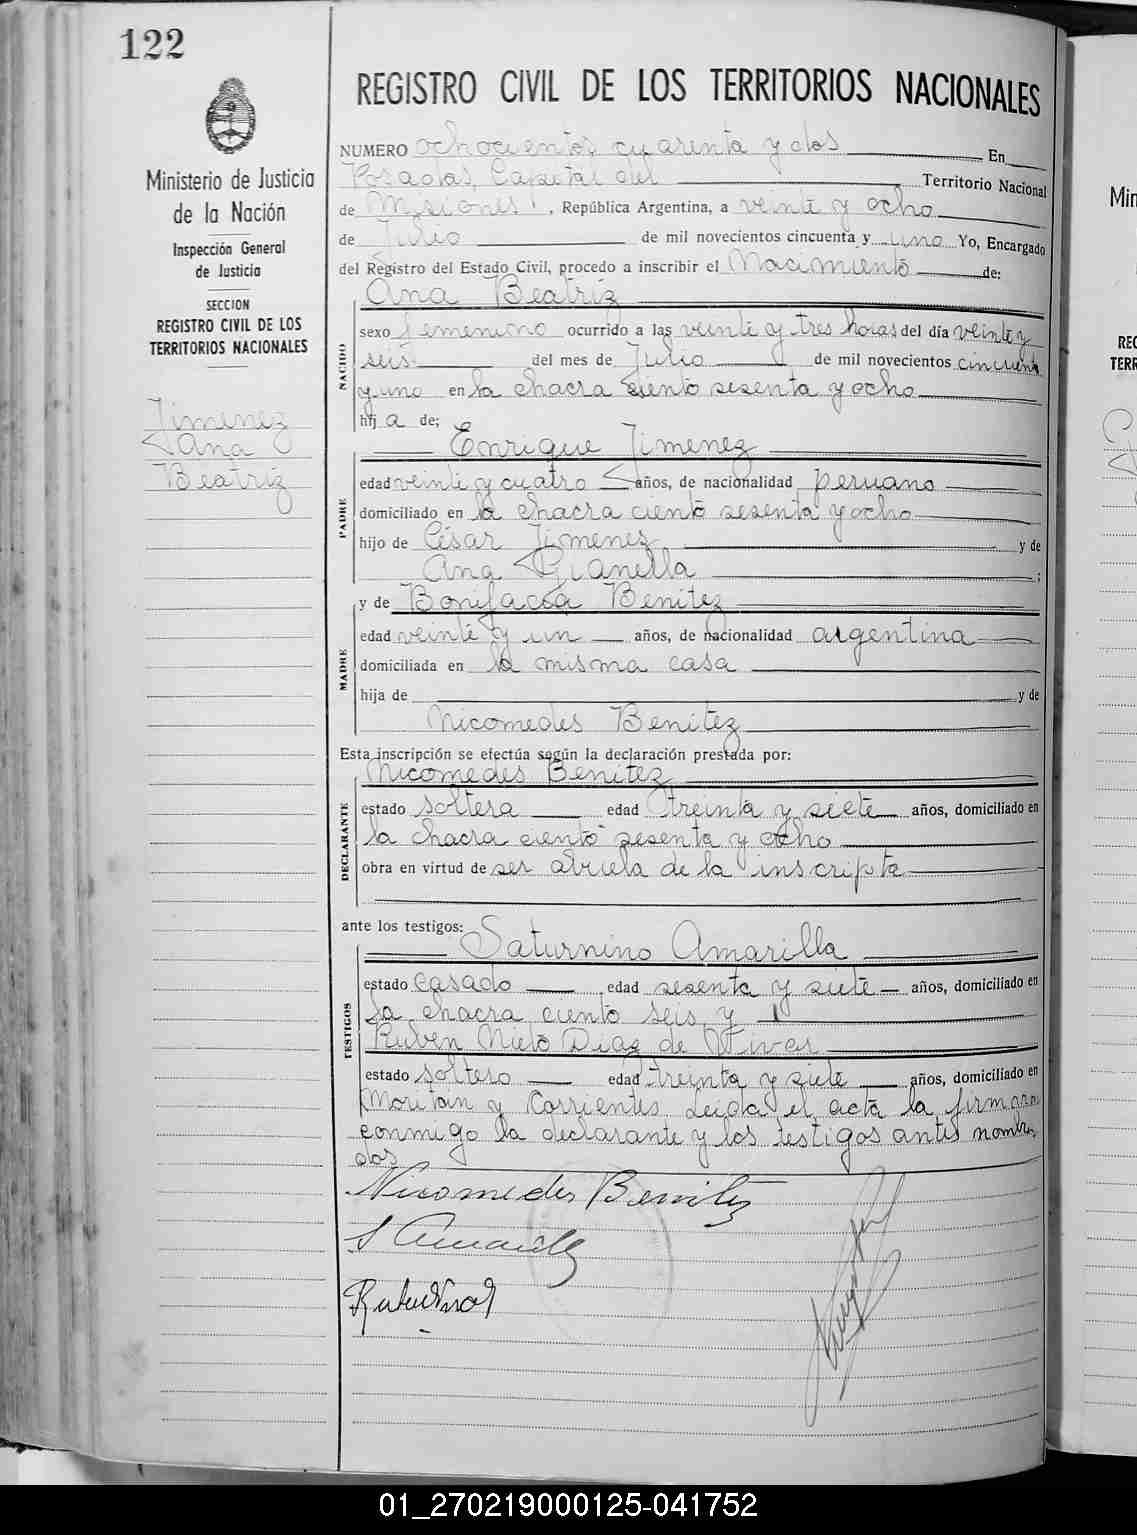 122
Ministerio de Justicia
de la Nación
Inspección General
de Justicia
SECCION
REGISTRO CIVIL DE LOS
TERRITORIOS NACIONALES
Jimenez
Ana
Beatriz
REGISTRO CIVIL DE LOS TERRITORIOS NACIONALES
NUMERO ochocientos cuarenta y dos En
Posadas, Capital del Territorio Nacional
de Misiones, República Argentina, a veinte y ocho
de Julio de mil novecientos cincuenta y uno Yo, Encargado
del Registro del Estado Civil, procedo a inscribir el Nacimiento de:
Ana Beatriz
NACIDO
sexo femenino ocurrido a las veinte y tres horas del día veinte y
seis del mes de Julio de mil novecientos cincuenta
y uno en la chacra ciento sesenta y ocho
hij a de;
Enrique Jimenez
PADRE
edad veinte y cuatro años, de nacionalidad peruano
domiciliado en la chacra ciento sesenta y ocho
hijo de César Jimenez y de
Ana Gianella ;
y de Bonifacia Benitez
MADRE
edad veinte y un años, de nacionalidad argentina
domiciliada en la misma casa
hija de y de
Nicomedes Benitez
Esta inscripción se efectúa según la declaración prestada por:
Nicomedes Benitez
DECLARANTE
estado soltera edad treinta y siete años, domiciliado en
la chacra ciento sesenta y ocho
obra en virtud de ser abuela de la inscripta
ante los testigos:
Saturnino Amarilla
TESTIGOS
estado casado edad sesenta y siete años, domiciliado en
la chacra ciento seis y
Ruben Nieto Diaz de Vivar
estado soltero edad treinta y siete años, domiciliado en
y Corrientes Leida el acta la firmaron
conmigo la declarante y los testigos antes nombra
dos
Nicomedes Benitez
S Amarilla
Min
REG
TERR
01_270219000125-041752